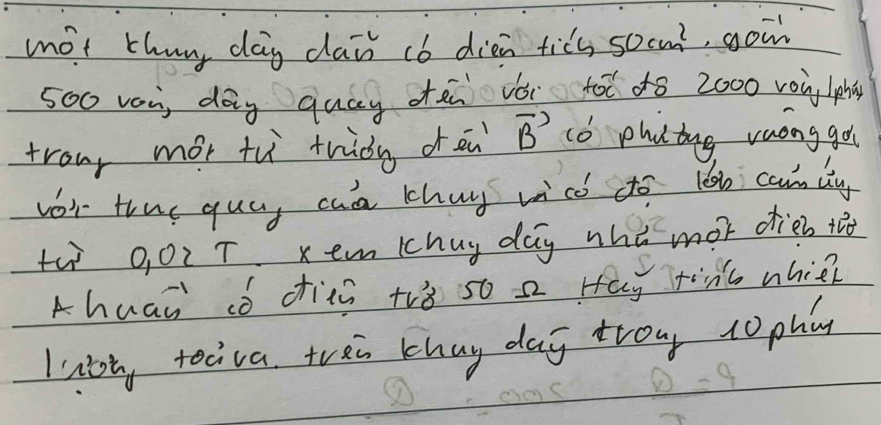 một khung dây dẫn có diện tích 50cm², gồm
500 vòng dây quay đều với tốc độ 2000 vòng/phút
trong một từ trường đều B⃗ có phương vuông góc
với trục quay của khung và có độ lớn cảm ứng
từ 0,02 T. Xem khung dây như một điện trở
thuần có điện trở 50 Ω Hãy tính nhiệt
lượng toả ra trên khung dây trong 10 phút